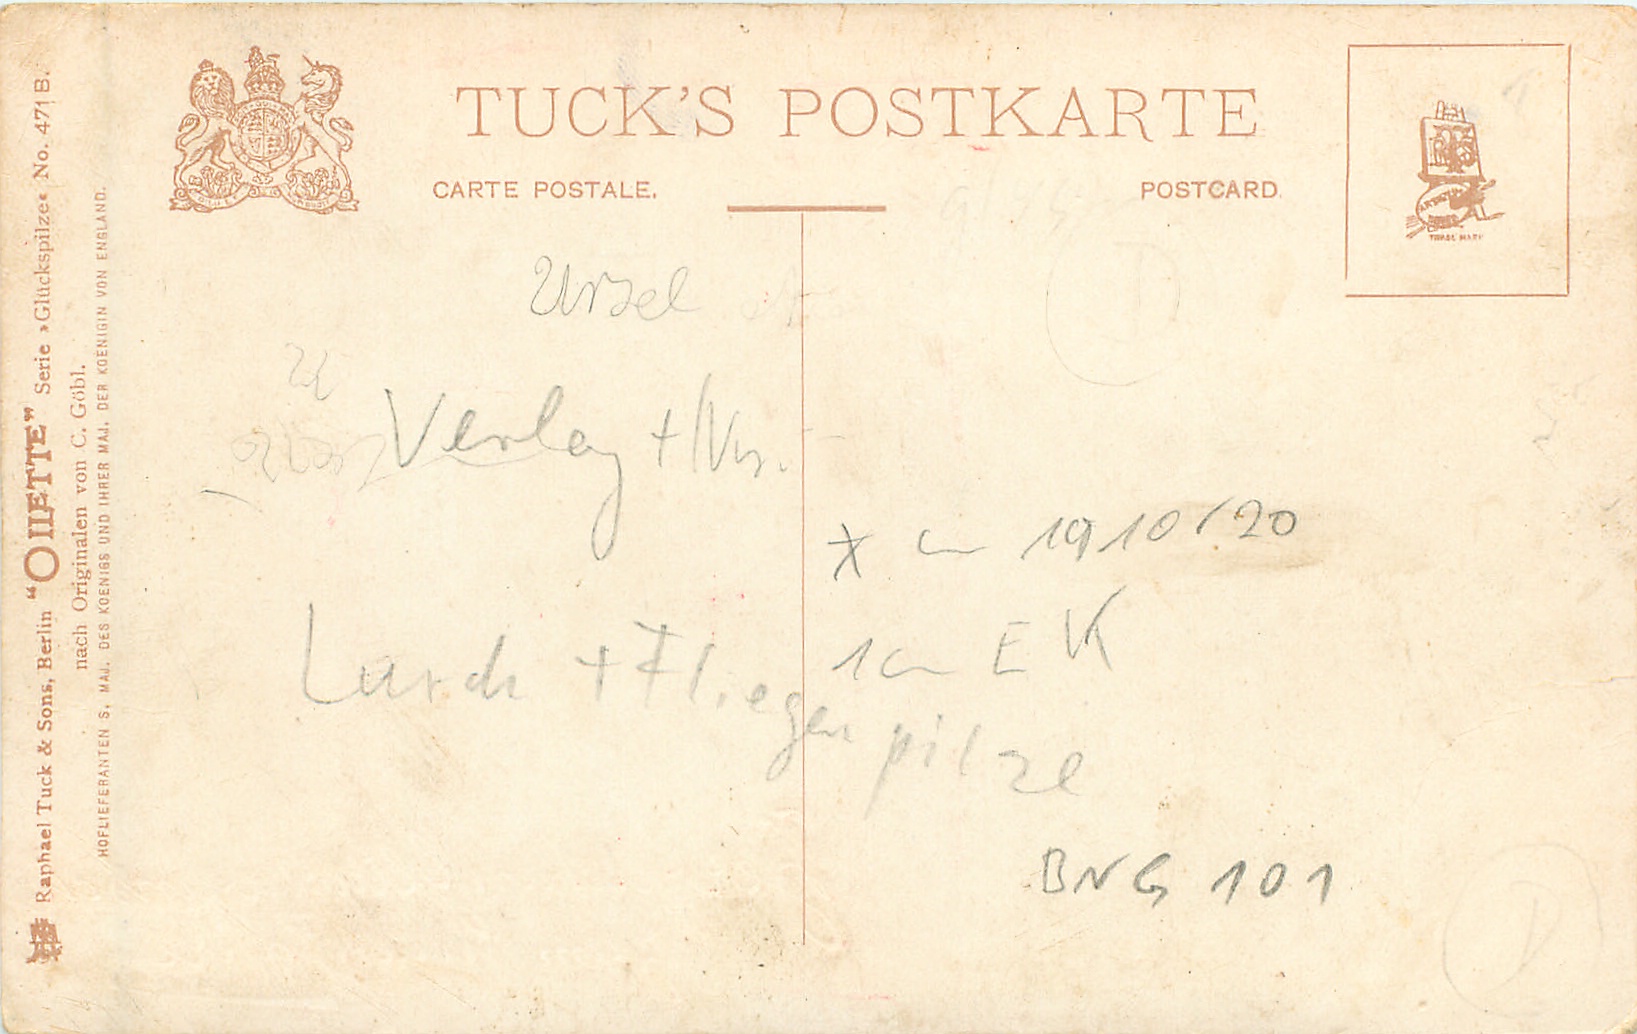 TUCK'S POSTKARTE
CARTE POSTALE.
POSTCARD.
TRADE MARK
Raphael Tuck & Sons, Berlin “OILETTE” Serie »Glückspilze« No. 471 B.
nach Originalen von C. Göbl.
HOFLIEFERANTEN S. MAJ. DES KOENIGS UND IHRER MAJ. DER KOENIGIN VON ENGLAND.
Ursel
Verlag + Nr.
* 1910/20
Lurch + Fliegenpilze
1 EK
BNG 101
D
D